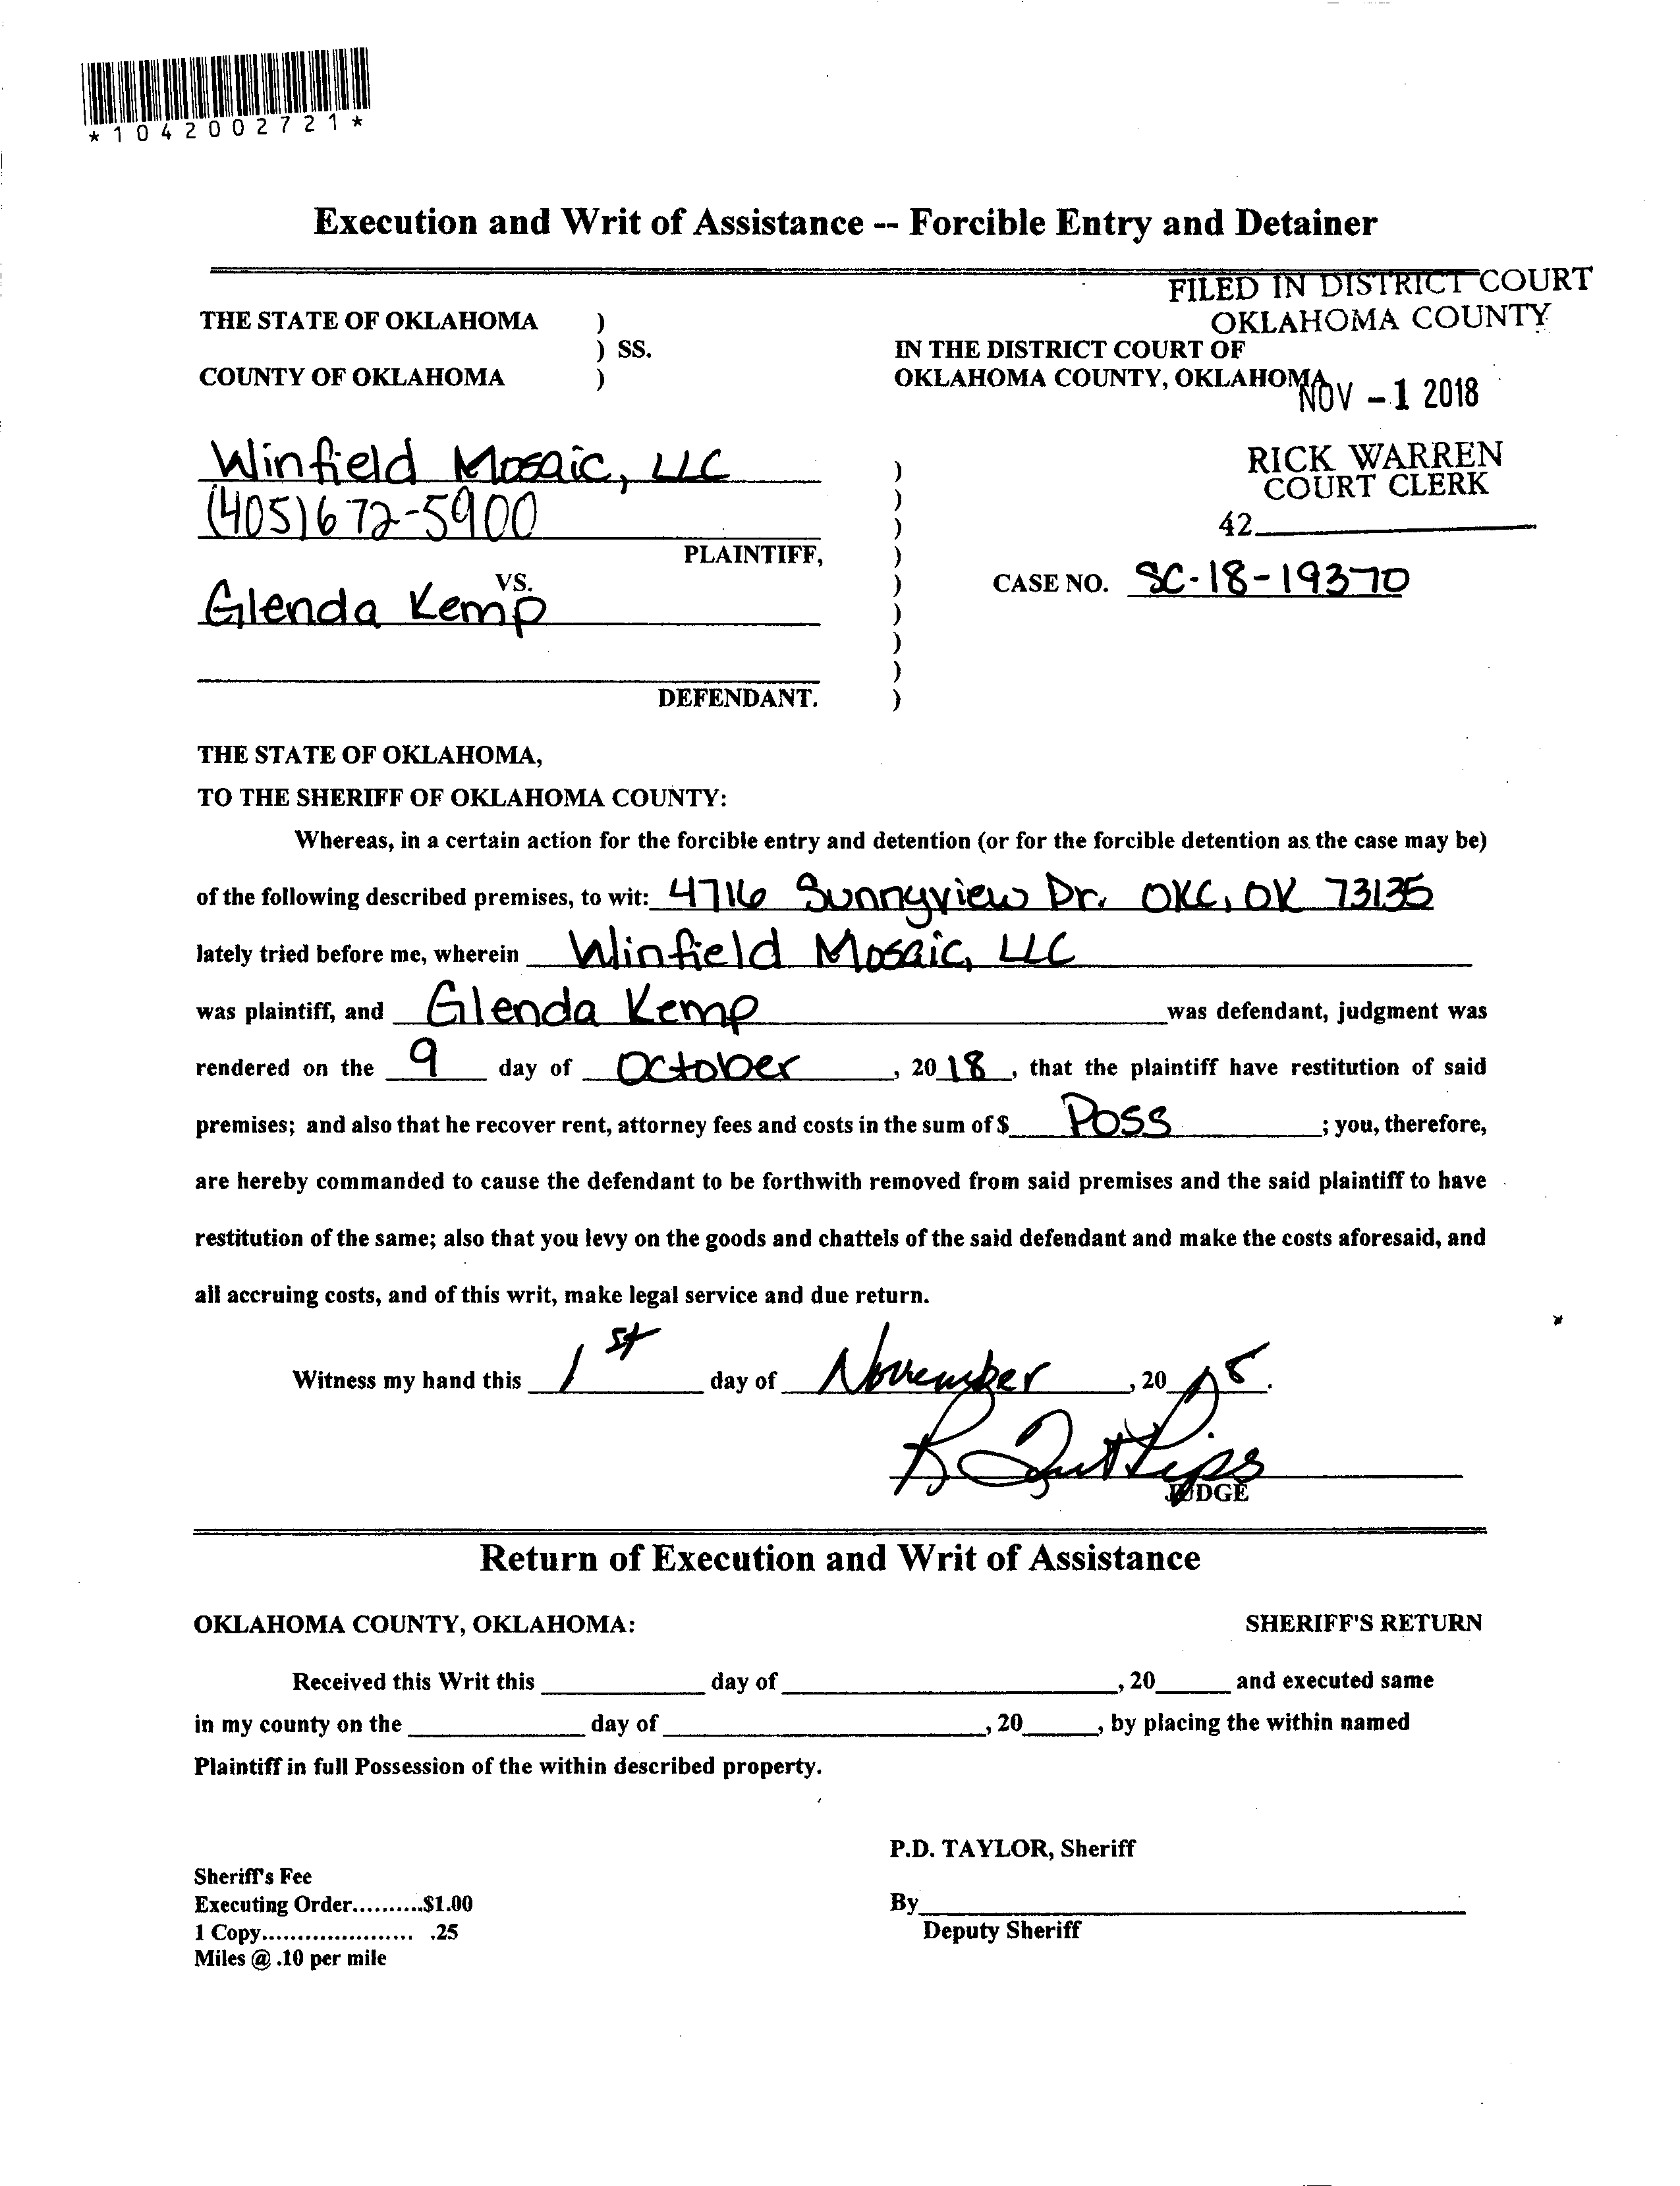 *1042002721*
Execution and Writ of Assistance -- Forcible Entry and Detainer
FILED IN DISTRICT COURT
OKLAHOMA COUNTY
THE STATE OF OKLAHOMA )
) SS.
COUNTY OF OKLAHOMA )
IN THE DISTRICT COURT OF
OKLAHOMA COUNTY, OKLAHOMA
NOV -1 2018
RICK WARREN
COURT CLERK
42
Winfield Mosaic, LLC )
(405)672-5900 )
)
PLAINTIFF, )
VS. )
CASE NO. SC-18-19370
Glenda Kemp )
)
)
DEFENDANT. )
THE STATE OF OKLAHOMA,
TO THE SHERIFF OF OKLAHOMA COUNTY:
Whereas, in a certain action for the forcible entry and detention (or for the forcible detention as the case may be)
of the following described premises, to wit: 4716 Sunnyview Dr. OKC, OK 73135
lately tried before me, wherein Winfield Mosaic, LLC
was plaintiff, and Glenda Kemp was defendant, judgment was
rendered on the 9 day of October, 2018, that the plaintiff have restitution of said
premises; and also that he recover rent, attorney fees and costs in the sum of $ Poss ; you, therefore,
are hereby commanded to cause the defendant to be forthwith removed from said premises and the said plaintiff to have
restitution of the same; also that you levy on the goods and chattels of the said defendant and make the costs aforesaid, and
all accruing costs, and of this writ, make legal service and due return.
Witness my hand this 1st day of November, 2018.
JUDGE
Return of Execution and Writ of Assistance
OKLAHOMA COUNTY, OKLAHOMA: SHERIFF'S RETURN
Received this Writ this ____ day of ____, 20____ and executed same
in my county on the ____ day of ____, 20____, by placing the within named
Plaintiff in full Possession of the within described property.
P.D. TAYLOR, Sheriff
Sheriff's Fee
Executing Order..........$1.00
By____
1 Copy..................... .25
Deputy Sheriff
Miles @ .10 per mile